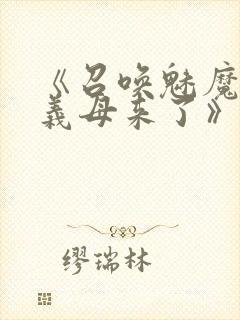 《召唤魅魔
義母来了》
缪瑞林